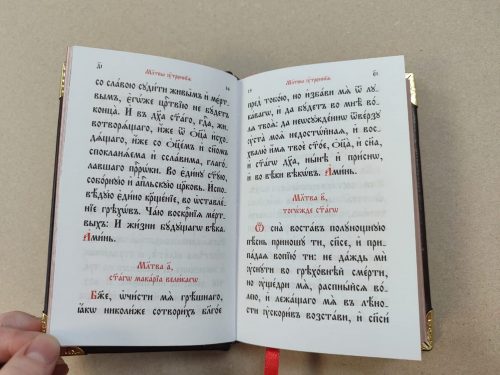 Мл҃твы ᲂу҆́трєннїѧ
со сла́вою сꙋди́ти живы̑мъ и҆ мє́рт-
вымъ, є҆гѡ́жє црⷭ҇твїю нє бꙋ́дєтъ
конца̀. И҆ въ дх҃а ст҃а́го, гдⷭ҇а, жи-
вотворѧ́щаго, и҆́жє ѿ ѻ҆ц҃а̀ и҆схо-
дѧ́щаго, и҆́жє со ѻ҆ц҃є́мъ и҆ сн҃омъ
спокланѧ́єма и҆ ссла́вима, глаго́-
лавшаго прⷪ҇рѡ́ки. Во є҆ди́нꙋ ст҃ꙋ́ю,
собо́рнꙋю и҆ а҆пⷭ҇льскꙋю цр҃ковь. И҆спо-
вѣ́дꙋю є҆ди́но крⷭ҇щє́нїє, во ѡ҆ставлє́-
нїє грѣхѡ́въ. Ча́ю воскрⷭ҇нїѧ мє́рт-
выхъ: И҆ жи́зни бꙋ́дꙋщагѡ вѣ́ка.
А҆ми́нь.
Мл҃тва а҃,
ст҃а́гѡ мака́рїа вєли́кагѡ
Бж҃є, ѡ҆чи́сти мѧ̀ грѣ́шнаго,
ꙗ҆́кѡ николи́жє сотвори́хъ благо́є
Мл҃твы ᲂу҆́трєннїѧ
прєд̾ тобо́ю, но и҆зба́ви мѧ̀ ѿ лꙋ-
ка́вагѡ, и҆ да бꙋ́дєтъ во мнѣ̀ во́-
лѧ твоѧ̀: да нєѡсꙋждє́ннѡ ѿвє́рзꙋ
ᲂу҆ста̀ моѧ̑ нєдостѡ́йнаѧ, и҆ вос-
хвалю̀ и҆́мѧ твоє̀ ст҃о́є, ѻ҆ц҃а̀, и҆ сн҃а,
и҆ ст҃а́гѡ дх҃а, нн҃ѣ и҆ при́снѡ,
и҆ во вѣ́ки вѣкѡ́въ. А҆ми́нь.
Мл҃тва в҃,
тогѡ́ждє ст҃а́гѡ
Ѿ сна̀ воста́въ полꙋ́нощнꙋю
пѣ́снь приношꙋ́ ти, сп҃сє, и҆ при-
па́даѧ вопїю́ ти: нє да́ждь ми
ᲂу҆снꙋ́ти во грѣхо́внѣй смє́рти,
но ᲂу҆щє́дри мѧ̀, распны́йсѧ во́-
лєю, и҆ лєжа́щаго мѧ̀ въ лѣ́но-
сти ᲂу҆скори́въ возста́ви, и҆ сп҃си́